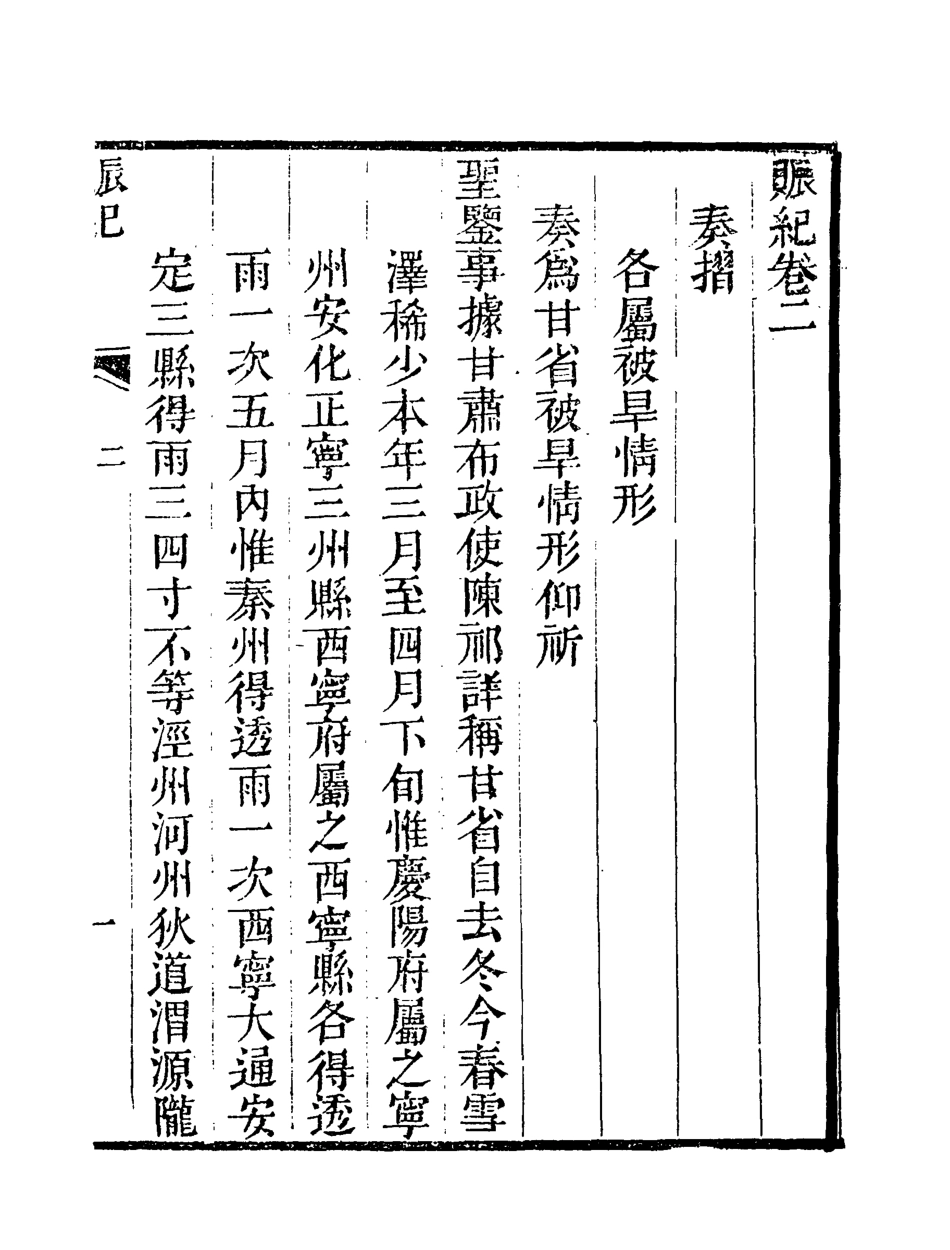 賑紀卷二
奏摺
各屬被旱情形
奏爲甘省被旱情形仰祈
聖鑒事據甘肅布政使陳祁詳稱甘省自去冬今春雪
澤稀少本年三月至四月下旬惟慶陽府屬之寧
州安化正寧三州縣西寧府屬之西寧縣各得透
雨一次五月內惟秦州得透雨一次西寧大通安
定三縣得雨三四寸不等涇州河州狄道渭源隴
賑紀
二
一